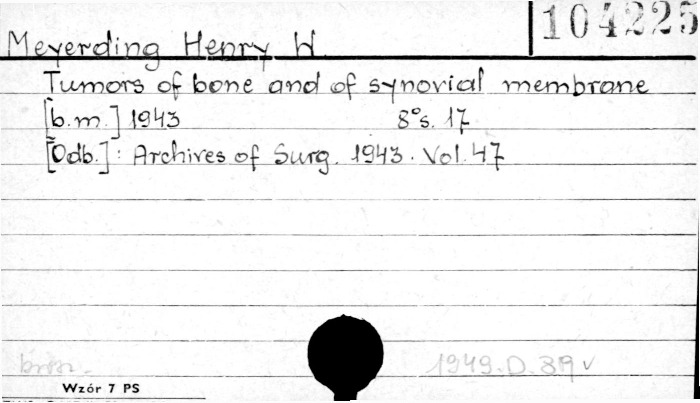 104225
Meyerding Henry W
Tumors of bone and of synovial membrane
[b.m.] 1943 8°s. 17
[Odb.]: Archives of Surg. 1943. Vol. 47
brosz. 1949.D.89 v
Wzór 7 PS